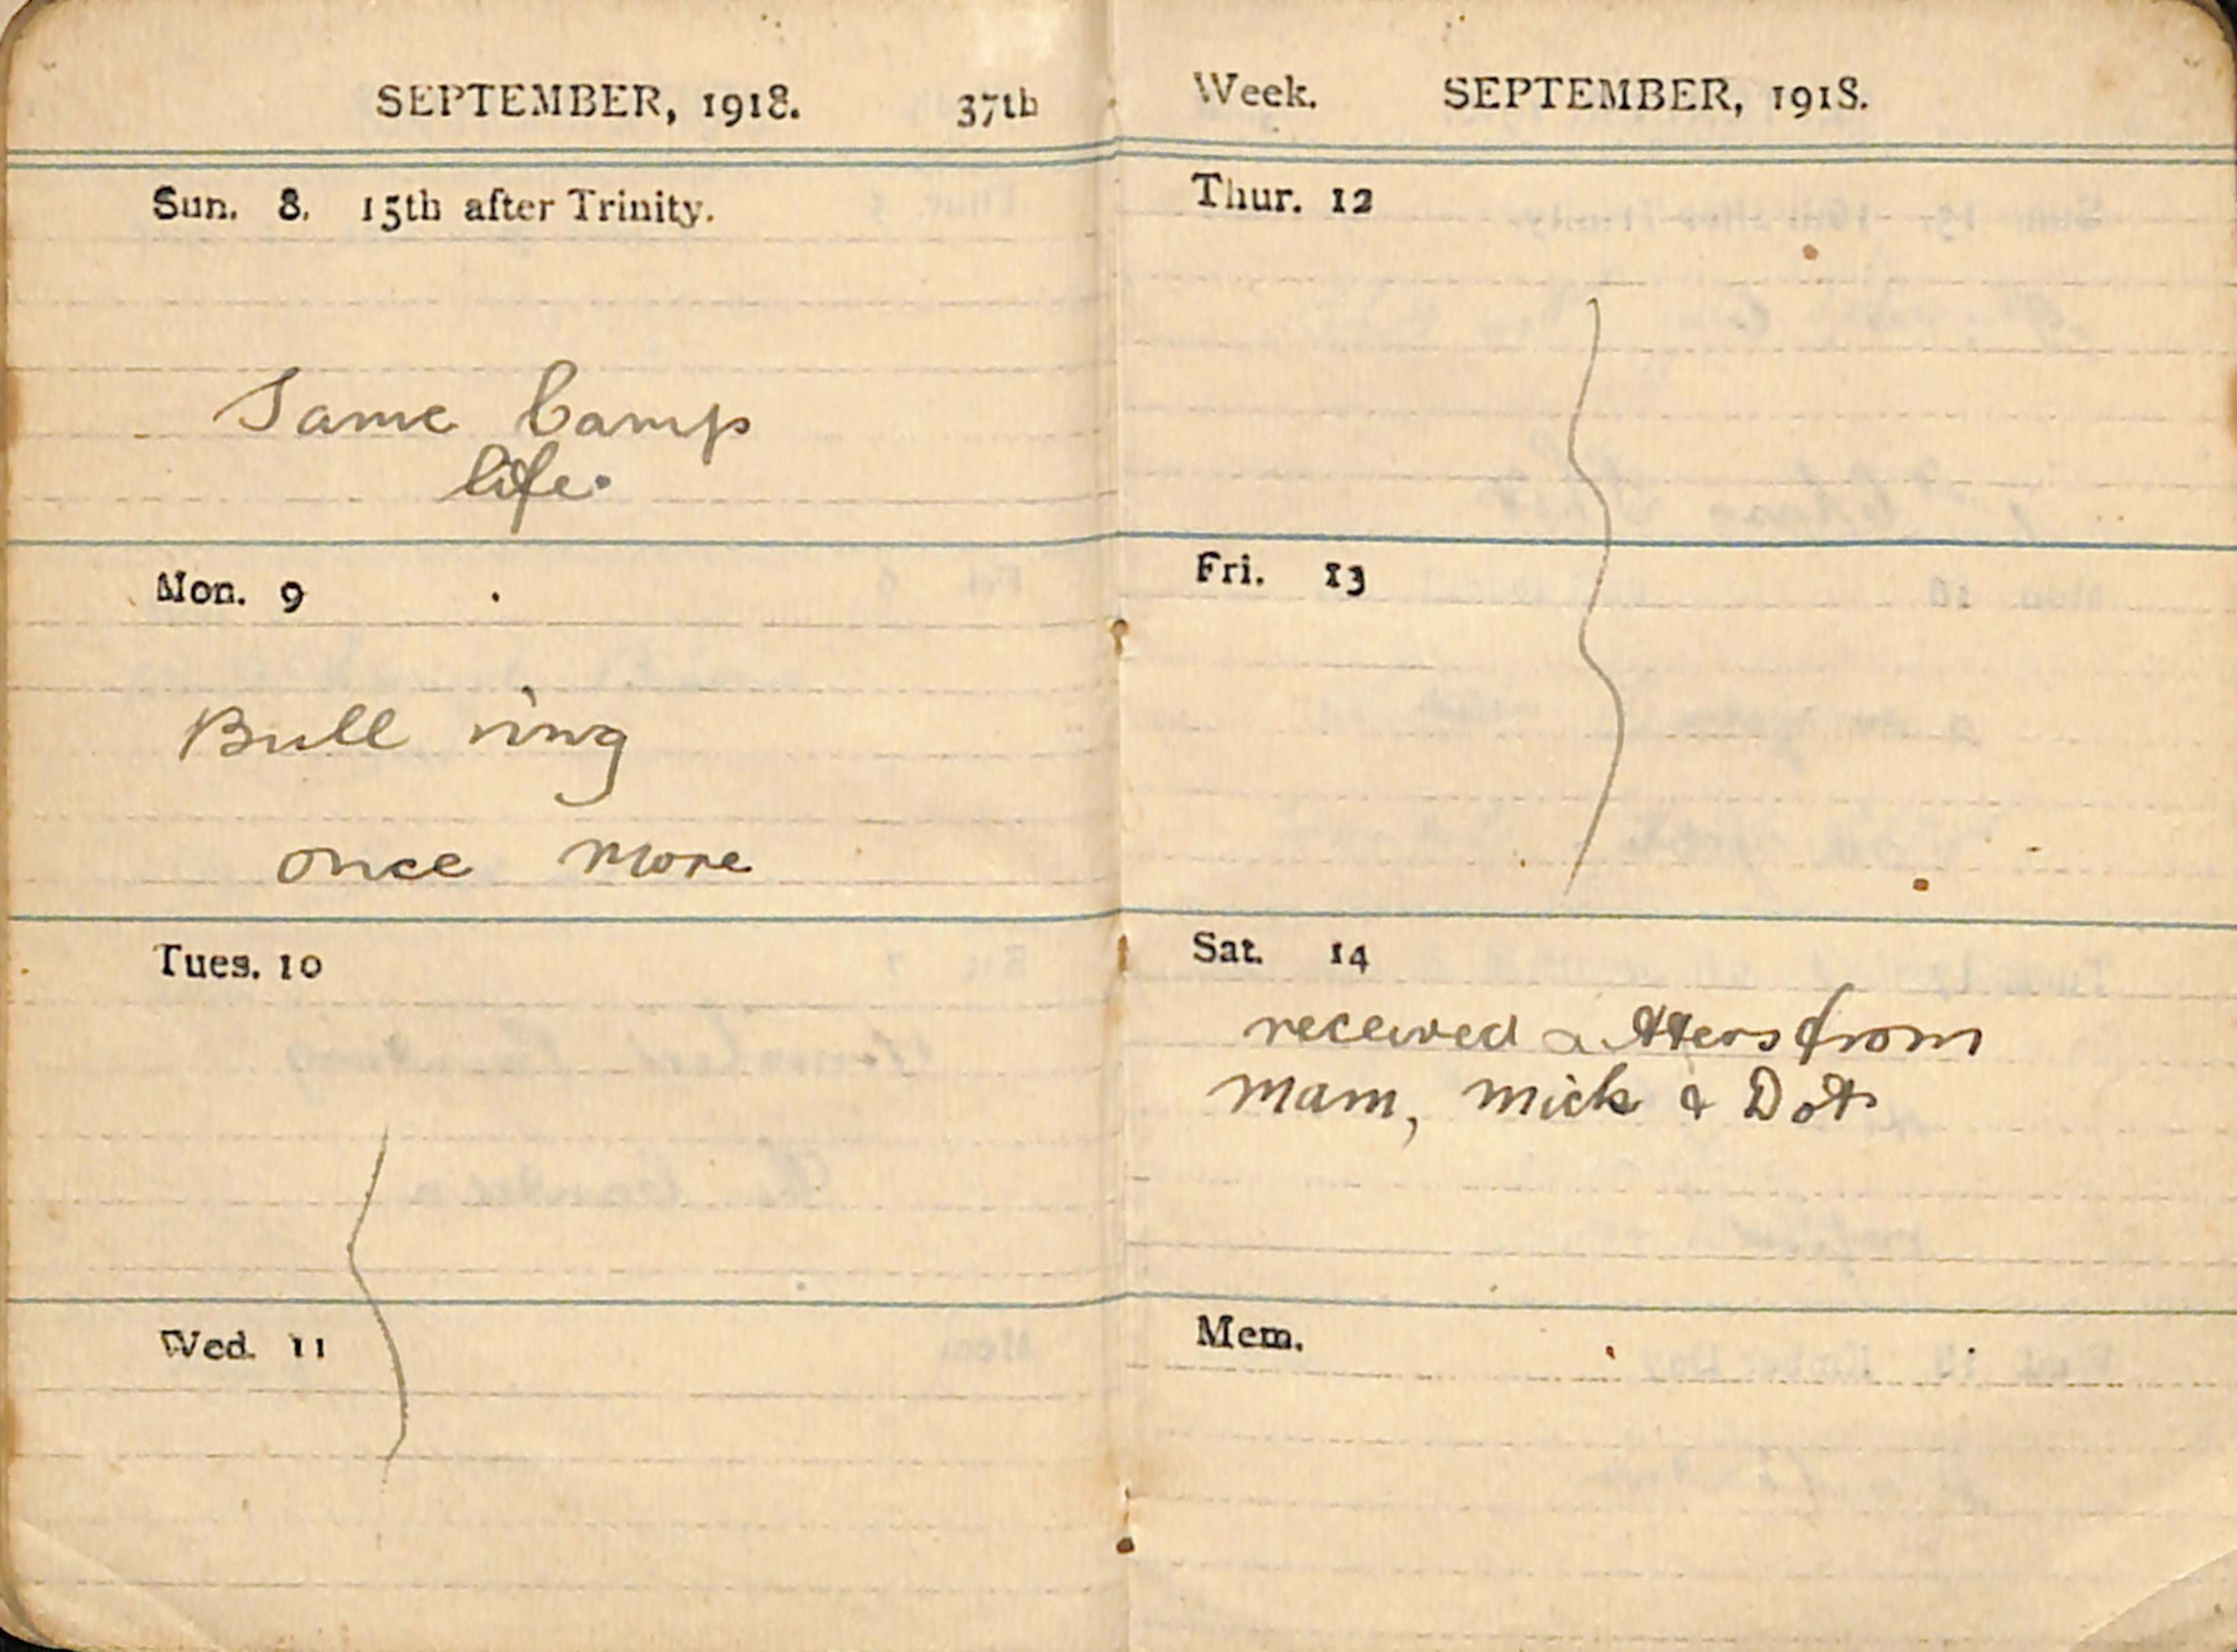 SEPTEMBER, 1918. 37th
Sun. 8. 15th after Trinity.
Same Camp
life.
Mon. 9
Bull ring
once more
Tues. 10
Wed. 11
Week. SEPTEMBER, 1918.
Thur. 12
Fri. 13
Sat. 14
received from
mam, mick & Dot
Mem.